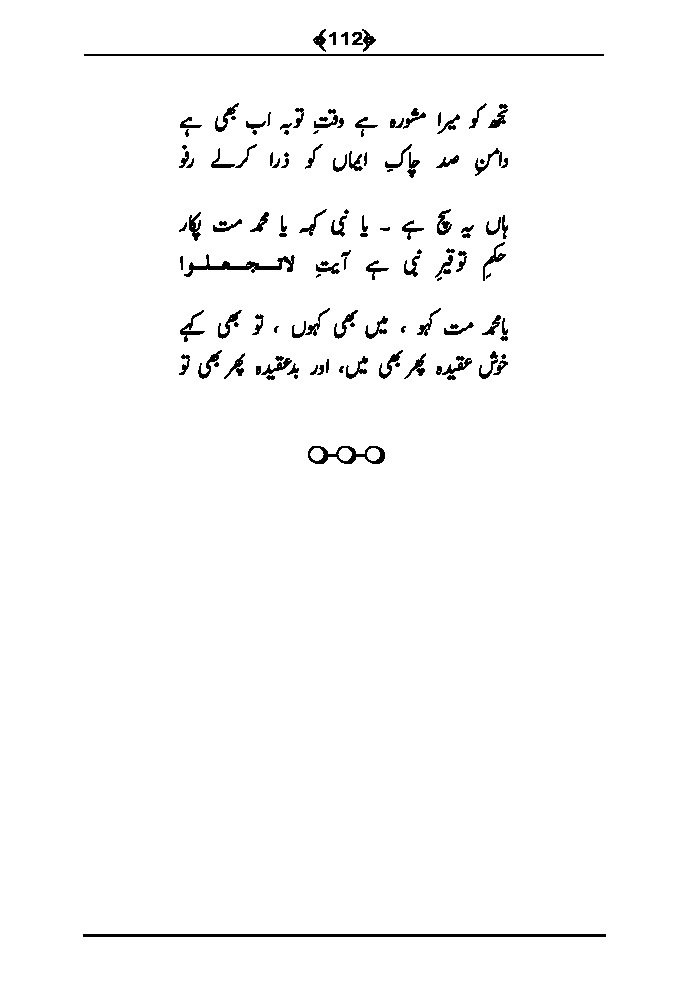 ﴿112﴾
تجھ کو میرا مشورہ ہے وقتِ توبہ اب بھی ہے
دامنِ صد چاکِ ایماں کو ذرا کرلے رفو
ہاں یہ سچ ہے ۔ یا نبی کہہ یا محمد مت پکار
حکمِ توقیرِ نبی ہے آیتِ لاتجعلوا
یامحمد مت کہو ، میں بھی کہوں ، تو بھی کہے
خوش عقیدہ پھر بھی میں، اور بدعقیدہ پھر بھی تو